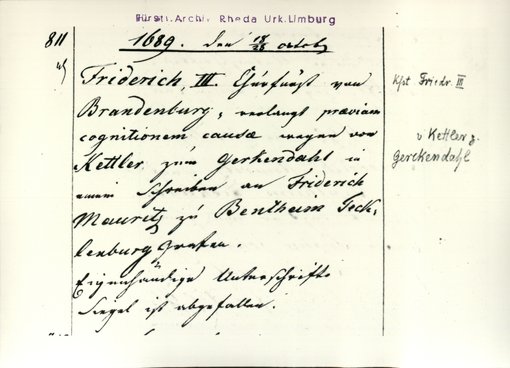 Fürstl. Archiv Rheda Urk. Limburg
811
1689. den 18/28 octob
Friderich III. Churfürst von
Brandenburg, verlangt præviam
cognitionem causæ wegen von
Kettler zum Gerkendahl in
einem Schreiben an Friderich
Mauritz zu Bentheim Teck-
lenburg Grafen.
Eigenhändige Unterschrift
Siegel ist abgefallen.
Kfst Friedr. III
v Kettler z.
Gerckendahl